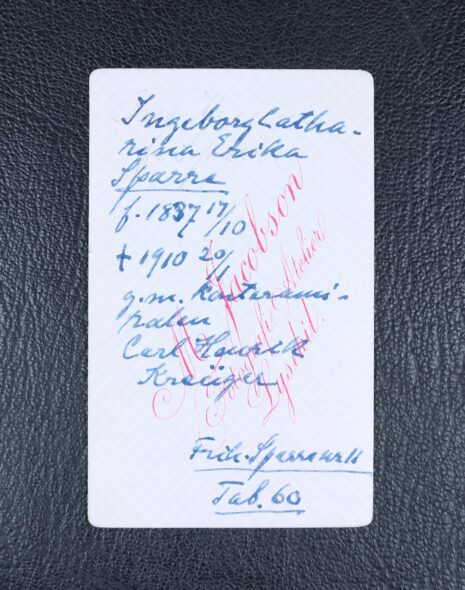 Ingeborg Catha-
rina Erika
Sparre
f. 1837 17/10
† 1910 20/1
g.m. konteramí-
ralen
Carl Henrik
Kreüger
Frih. Sparre nr 11
Tab. 60
M. Jacobson
Fotografi Atelier
Lysekil.